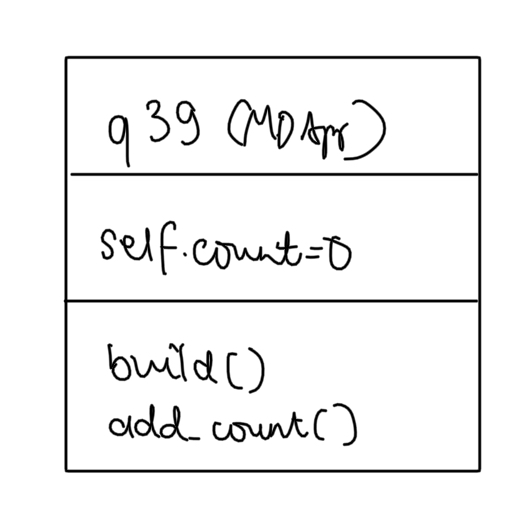 q39 (MDApp)
self.count=0
build()
add_count()